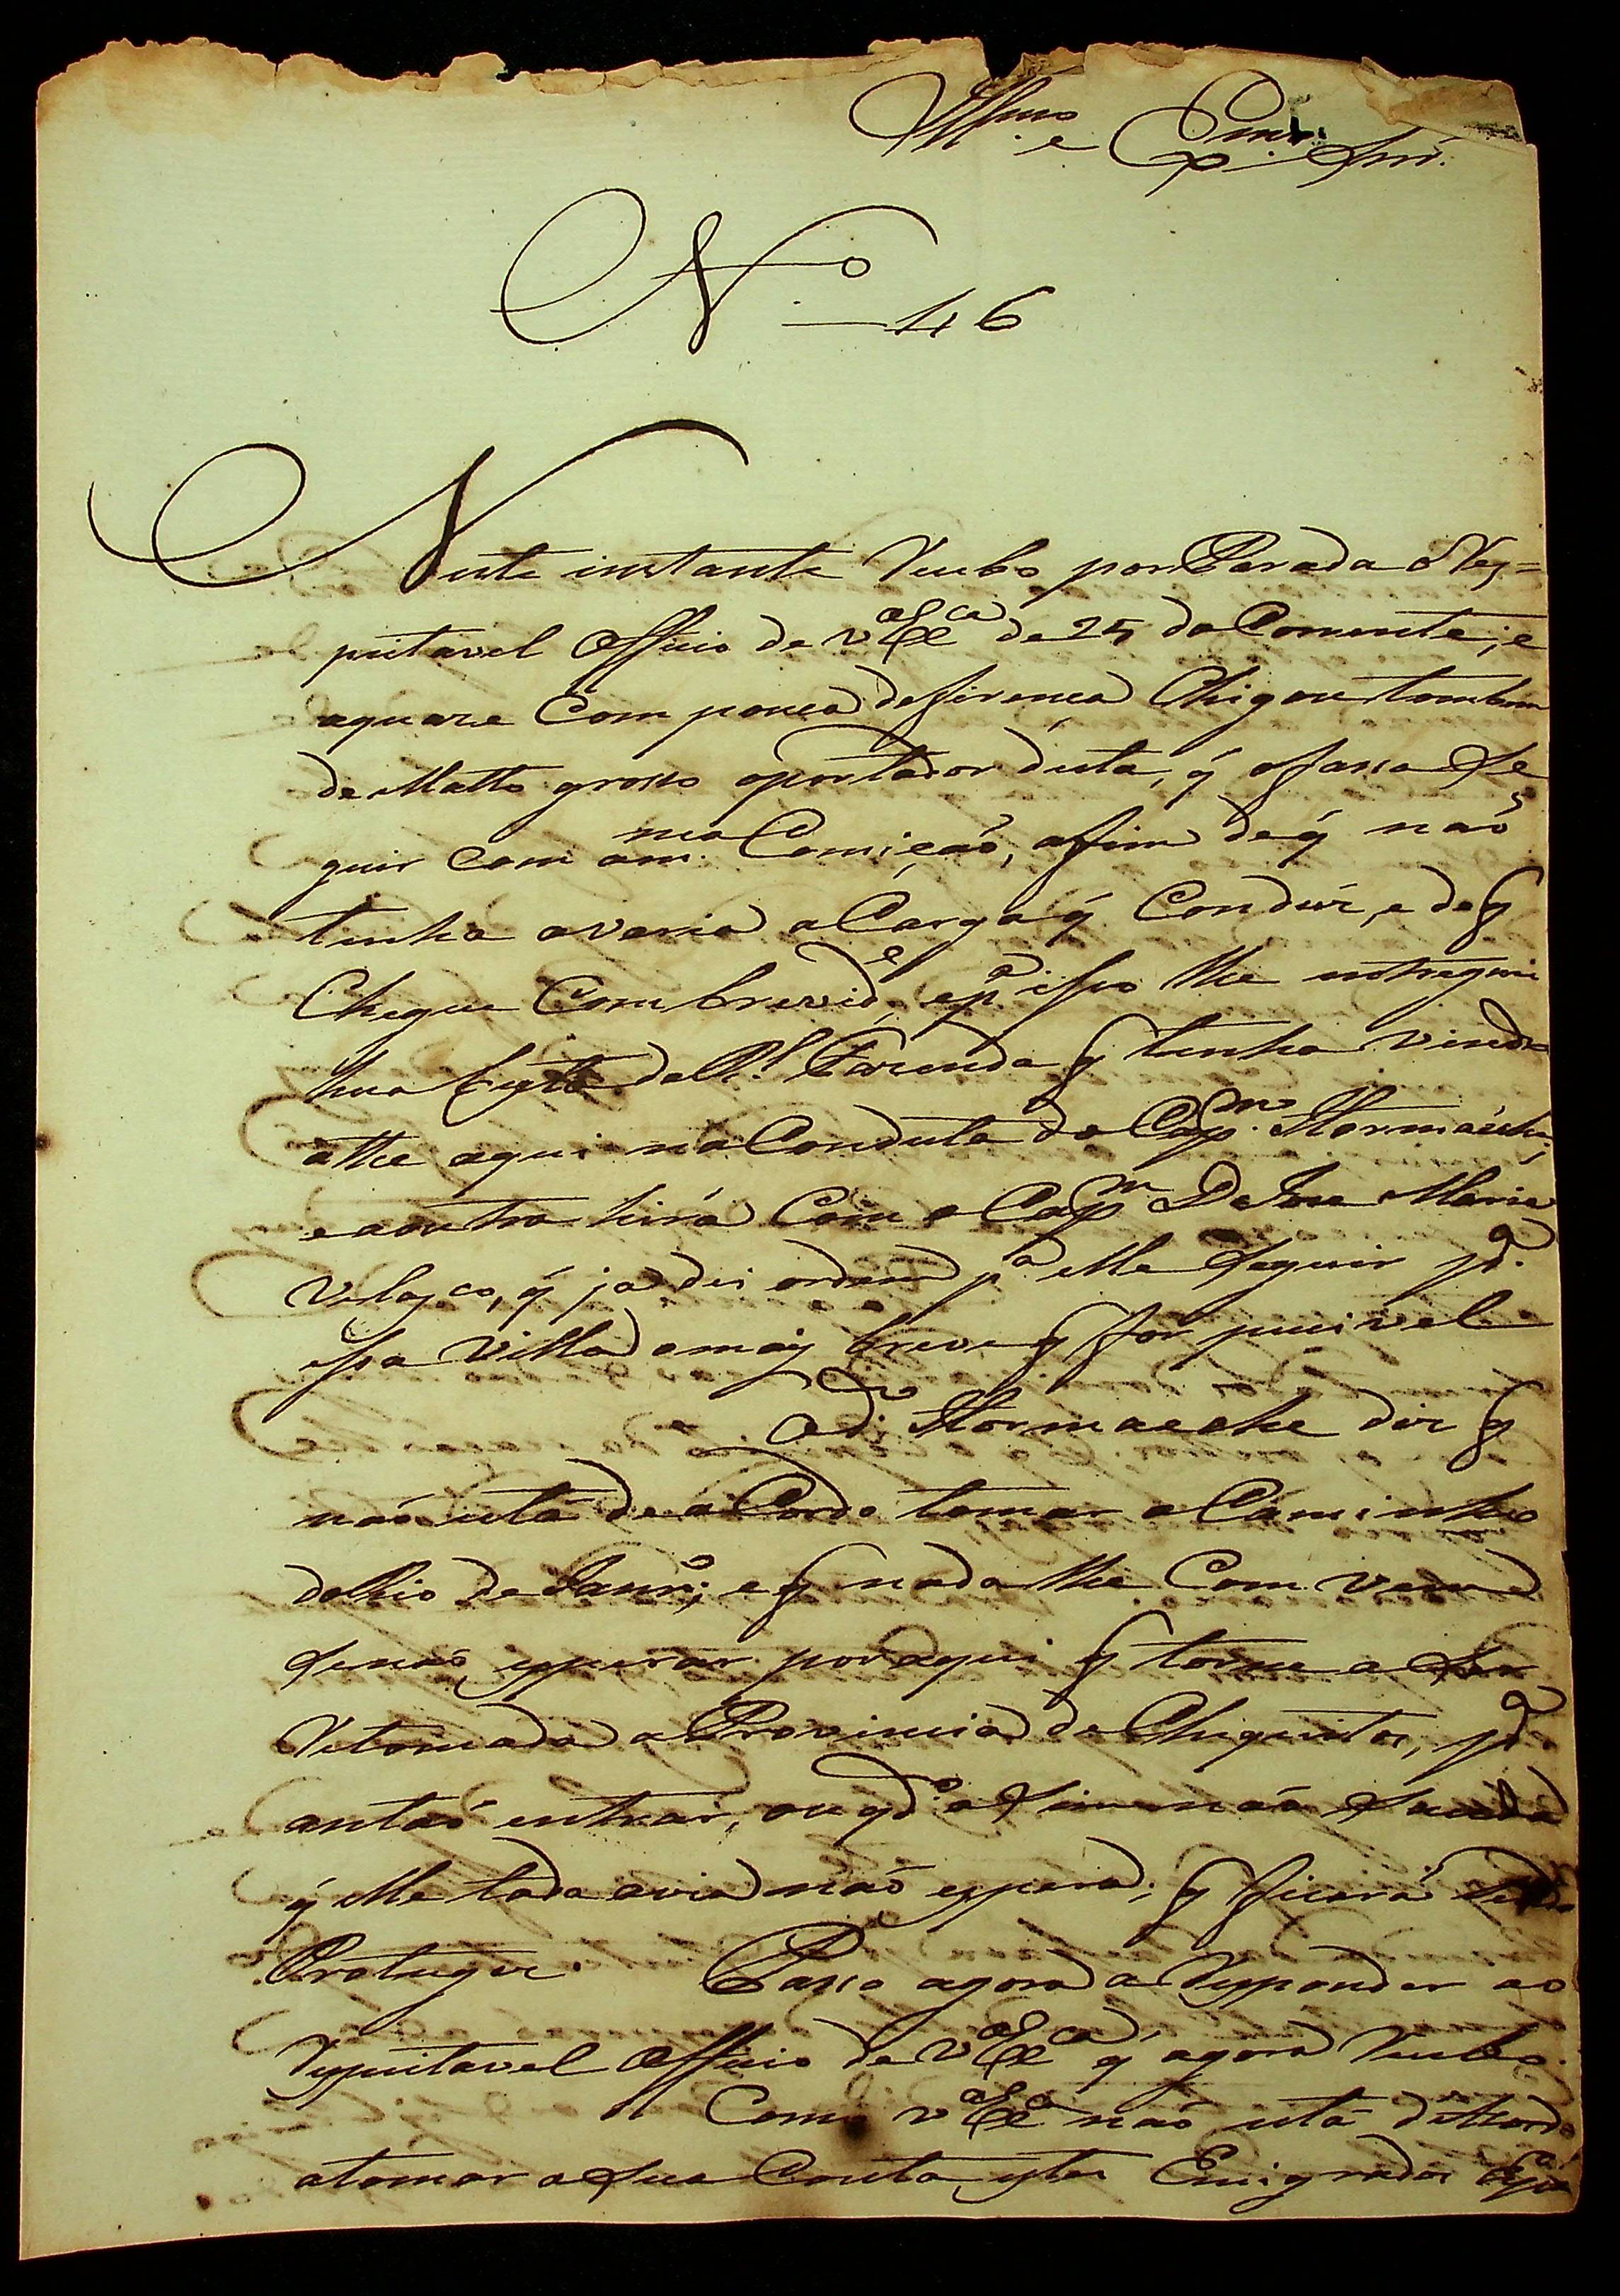 Illmo. e Exmo. Snr.
No. 46
Neste instante Recebo por Parada o Res=
peitavel Officio de V Exca de 25 do Corrente; e
aquaze Com pouca desirença Chigou tambem
de Matto grosso oportador desta, q̃ ofasso Se
guir com am.ma Comição, afim de q̃ naõ
tenha avaria aCarga q̃ Conduz, e de q̃
Chegue Com brevide, epa isso lhe entreguei
hua da Rl. Fazenda q̃ tinha vindo
athe aqui na Conduta do Capm. Hormaeche,
e aoutra hirá Com o Capm D Joze Maria
Velasco, q̃ ja dei ordem pa elle Seguir pa.
essa Villa omais breve q̃ for pucivel
Odo. Hormaeche diz q̃
não está de aCordo tomar oCaminho
do Rio de Janro; e q̃ nada lhe Com vem
Senaõ esperar por aqui q̃ torne a Ser
Retomada aProvincia de Chiquitos, pa.
antaõ entrar, ou qdo aSim naõ Suceda
q̃ elle toda avia naõ espera; q̃ ficará Sendo
Protuguez. Passo agora a Responder ao
Respeitavel Officio de V Exca q̃ agora Recebo.
Como V Exca naõ está deAcordo
atomar aSua Conta estes Emigrados